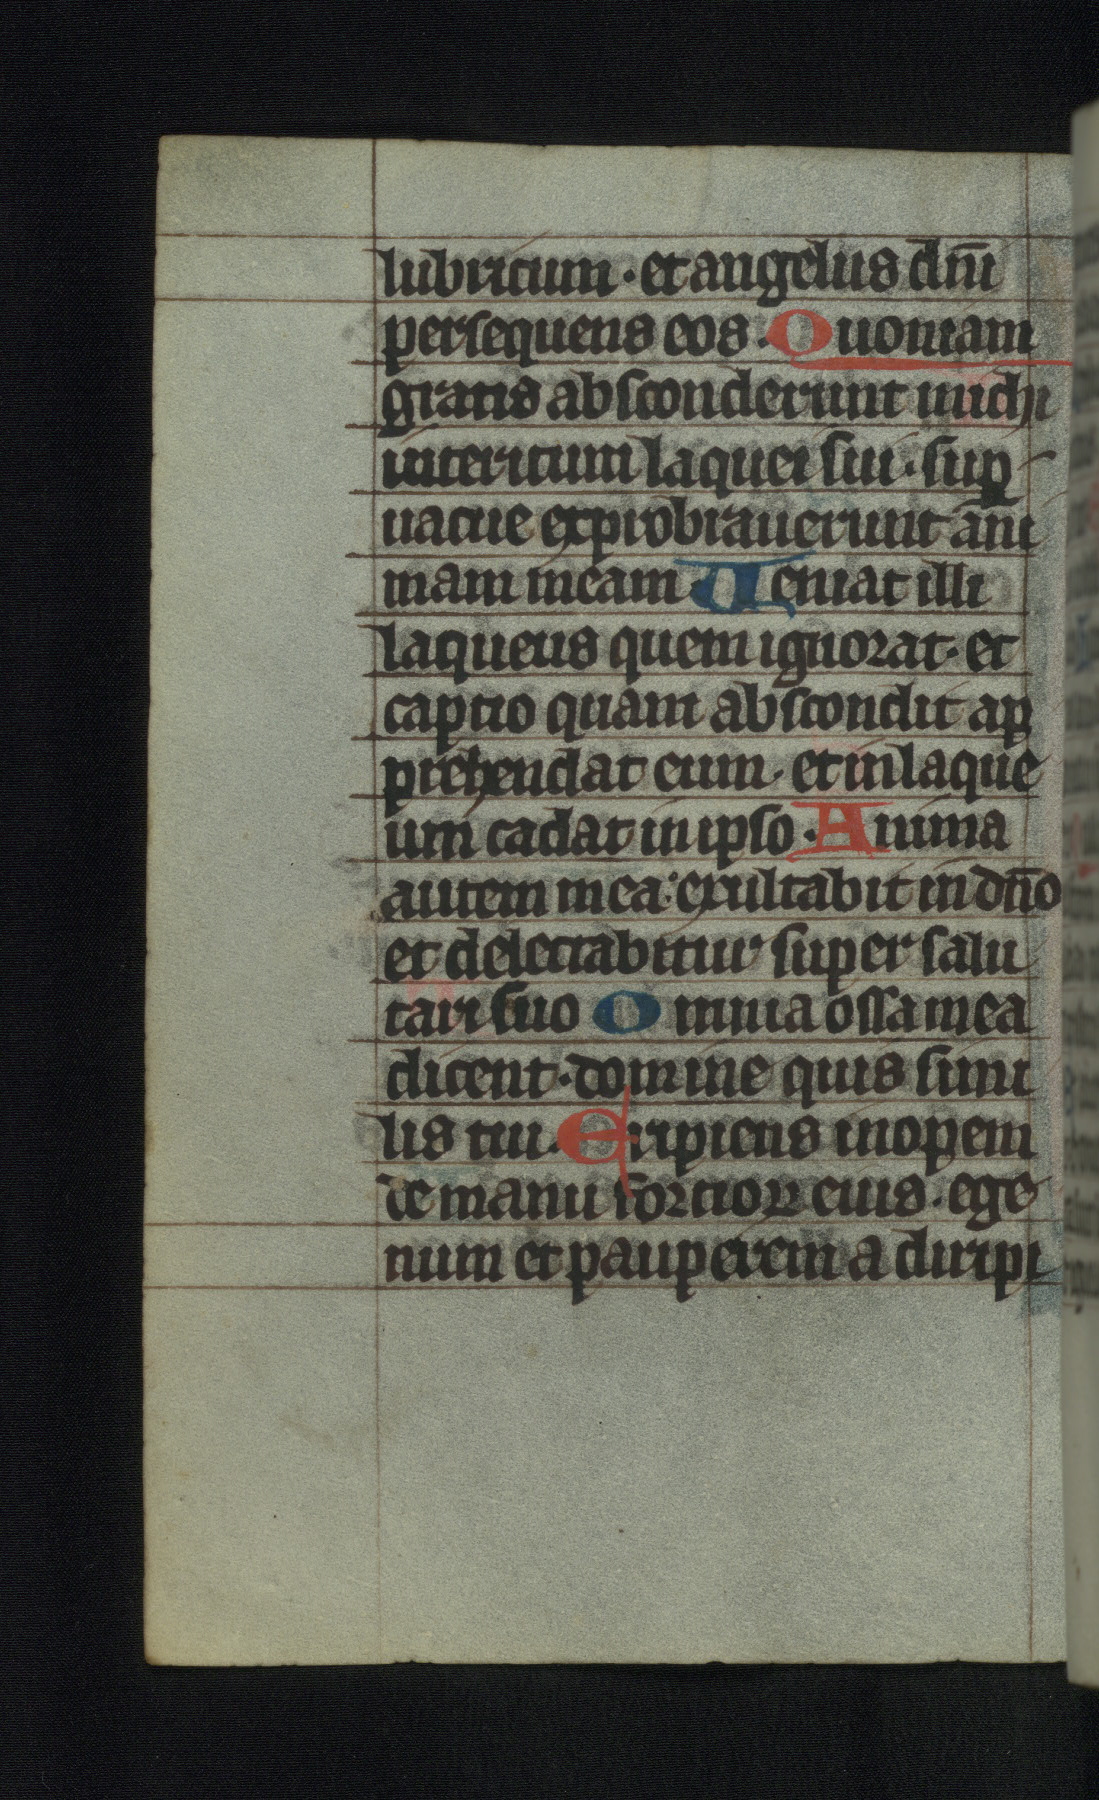 lubricum · et angelus dn̄i
persequens eos · Quoniam
gratis absconderunt michi
interitum laquei sui · sup̱
uacue exprobrauerunt ani
mam meam Veniat illi
laqueus quem ignorat · et
captio quam abscondit ap̱
prehendat eum · et in laque
um cadat in ipso · Anima
autem mea · exultabit in dn̄o
et delectabitur super salu
tari suo Omnia ossa mea
dicent · domine quis simi
lis tui · Eripiens inopem
de manu fortiorꝝ eius · ege
num et pauperem a diripi